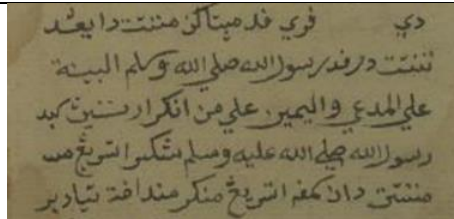 دي فري فد مپتاكن منتت دا يغد
تنتت در فد رسول الله صلي الله وسلم البينة
علي المدعي واليمين علي من انكر ارتين كبد
رسول الله صلي الله عليه وسلم اتس يغ
مننتت دان اتس يغ منكر تيادبر